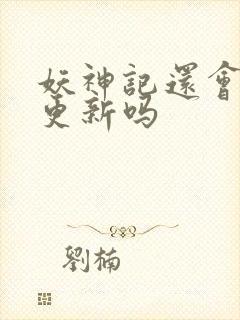 妖神記還會
更新吗
劉楠